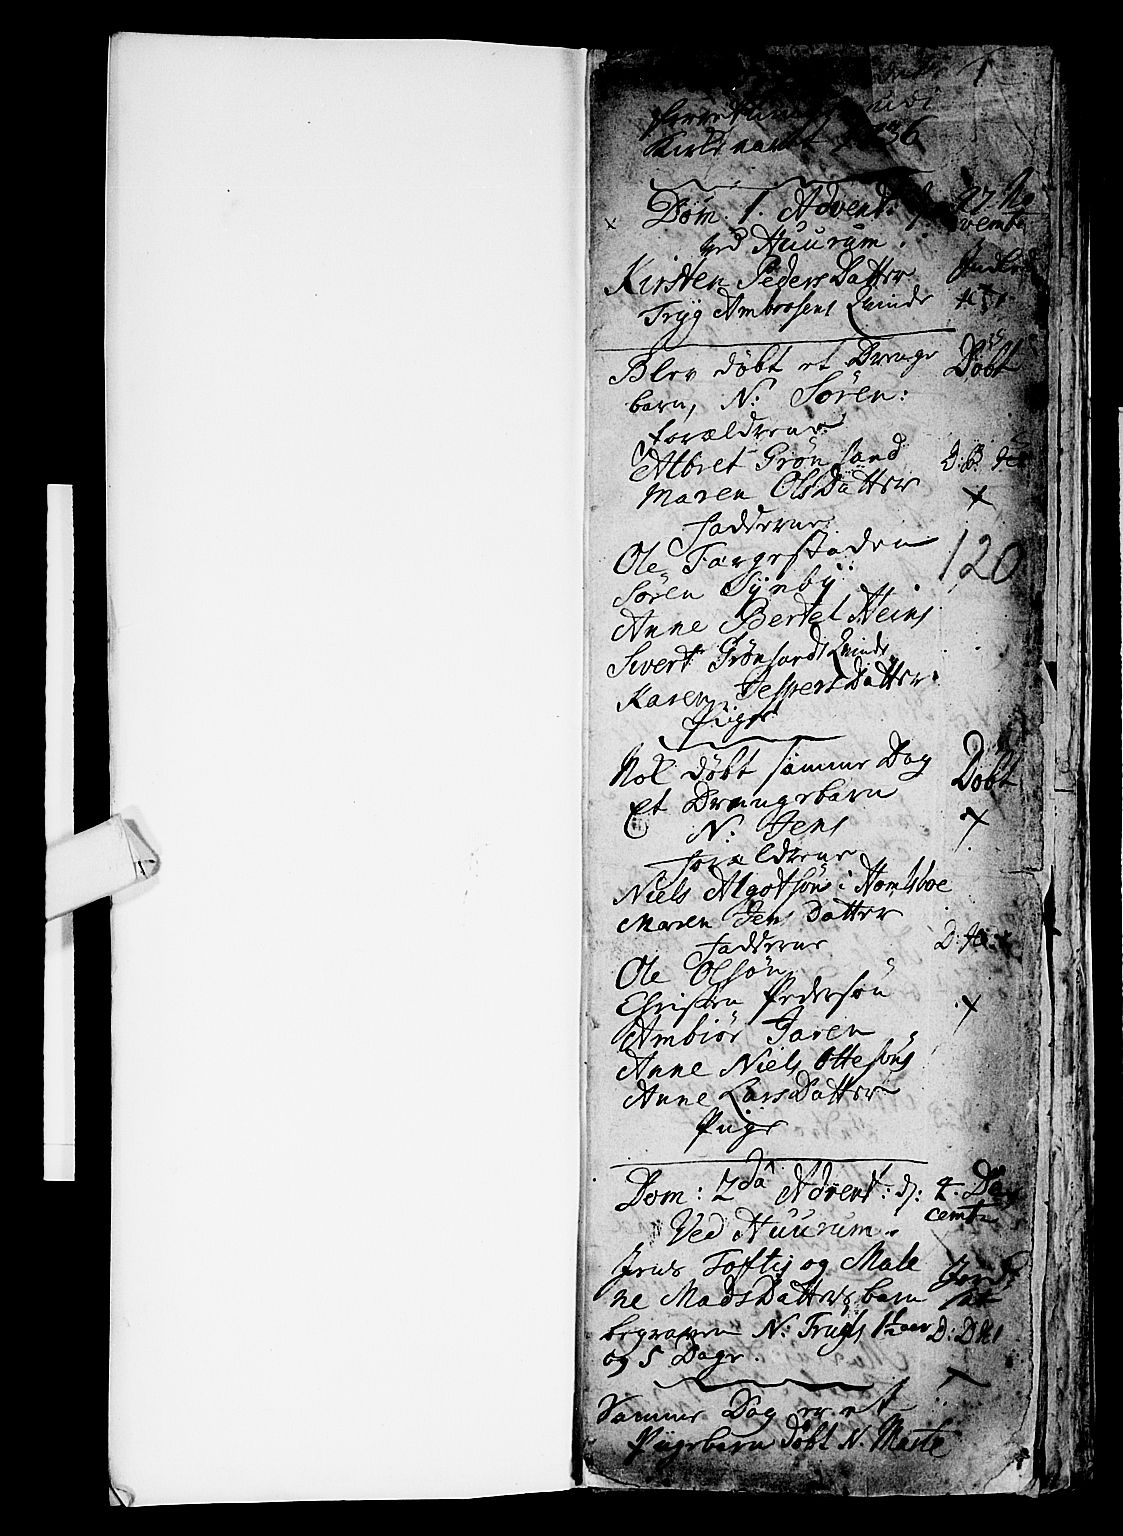 1
Kirke aaret 1736
Dom. 1. Advent: d. 27 No
vembr
ved Huurum.
Kirsten Peders Datter
Tryg Ambrosens Qvinde
Blev døbt et Drenge Døbt
barn, N: Søren:
forældrene
Albret Grønsand
Maren OlsDatter
Faddrene
Ole Fargestaden 120
Søren Synbÿ
Anne Bertel Heins
Sivert Grønsands Qvinde
Karen Jespers Datter.
Pige
Nok døbt samme Dag Døbt
et Drængebarn
N: Jens
forældrene
Niels Algotsøn i Homsboe
Maren Jens Datter
Faddrene
Ole Olsøn
Christen Pedersøn
Ambiør Garen
Anne Niels Ottesøns
Anne LarsDatter
Pige
Dom: 2da Advent: d: 4. De
cembr
Ved Huurum.
Jens Toftis og Male
ne MadsDatters barn
begraven N: Truls 1½ aar
og 5 Dage.
Samme Dag er et
Pigebarn døbt N. Marte